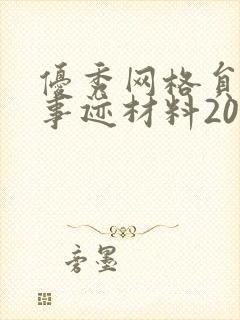 優秀网格
事迹材料20
旁墨